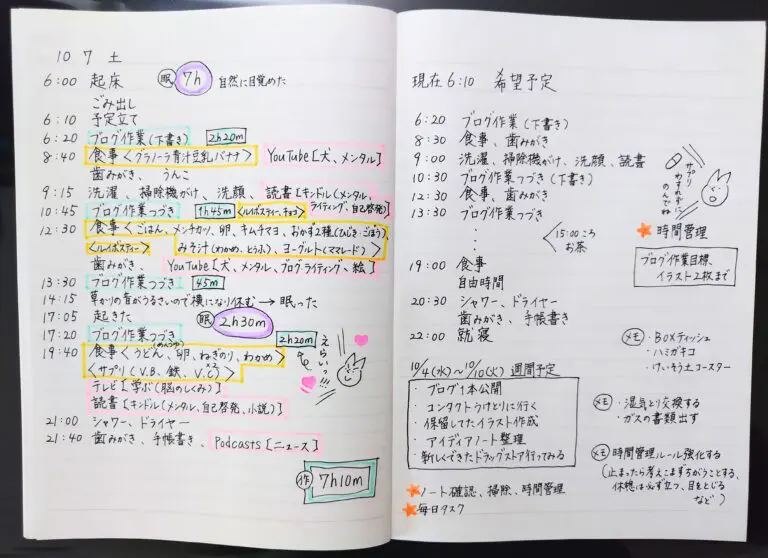 10 7 土
6:00 起床 眠 7h 自然に目覚めた
ごみ出し
6:10 予定立て
6:20 ブログ作業(下書き) 2h20m
8:40 食事<グラノーラ青汁豆乳バナナ> YouTube[犬、メンタル]
歯みがき、うんこ
9:15 洗濯、掃除機がけ、洗顔、読書[キンドル(メンタル、ライティング、自己啓発)]
10:45 ブログ作業つづき 1h45m <ルイボスティー、チョコ>
12:30 食事<ごはん、メンチカツ、卵、キムチマヨ、おかず2種(ひじき・ごぼう)、
<ルイボスティー> みそ汁(わかめ、とうふ)、ヨーグルト(ママレード)>
歯みがき、YouTube[犬、メンタル、ブログライティング、絵]
13:30 ブログ作業つづき 45m
14:15 草かりの音がうるさいので横になり休む→眠った
17:05 起きた 眠 2h30m
17:20 ブログ作業つづき 2h20m
19:40 食事<うどん(めんつゆ)、卵、ねぎのり、わかめ>
<サプリ(V.B、鉄、V.C×2)>
えらいっ!!!
テレビ[学ぶ(脳のしくみ)]
読書[キンドル(メンタル、自己啓発、小説)]
21:00 シャワー、ドライヤー
21:40 歯みがき、手帳書き、Podcasts[ニュース]
作 7h10m
現在6:10 希望予定
6:20 ブログ作業(下書き)
8:30 食事、歯みがき
9:00 洗濯、掃除機がけ、洗顔、読書
10:30 ブログ作業つづき(下書き)
12:30 食事、歯みがき
13:30 ブログ作業つづき
15:00ころ
お茶
19:00 食事
自由時間
20:30 シャワー、ドライヤー
歯みがき、手帳書き
22:00 就寝
サプリ
わすれずに
のんでね
時間管理
ブログ作業目標、
イラスト2枚まで
メモ ・BOXティッシュ
・ハミガキコ
・けいそう土コースター
10/4(水)~10/10(火) 週間予定
・ブログ1本公開
・コンタクトうけとりに行く
・保留してたイラスト作成
・アイディアノート整理
・新しくできたドラッグストア行ってみる
メモ ・湿気とり交換する
・ガスの書類出す
メモ 時間管理ルール強化する
(止まったら考えこまずちがうことする、
休憩は必ず立つ、目をとじる
など)
ノート確認、掃除、時間管理
毎日タスク